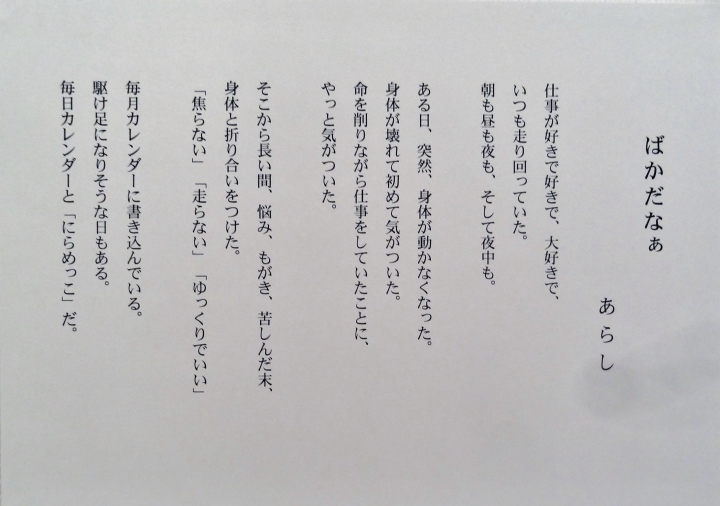 ばかだなぁ
あらし
仕事が好きで好きで、大好きで、
いつも走り回っていた。
朝も昼も夜も、そして夜中も。
ある日、突然、身体が動かなくなった。
身体が壊れて初めて気がついた。
命を削りながら仕事をしていたことに、
やっと気がついた。
そこから長い間、悩み、もがき、苦しんだ末、
身体と折り合いをつけた。
「焦らない」「走らない」「ゆっくりでいい」
毎月カレンダーに書き込んでいる。
駆け足になりそうな日もある。
毎日カレンダーと「にらめっこ」だ。